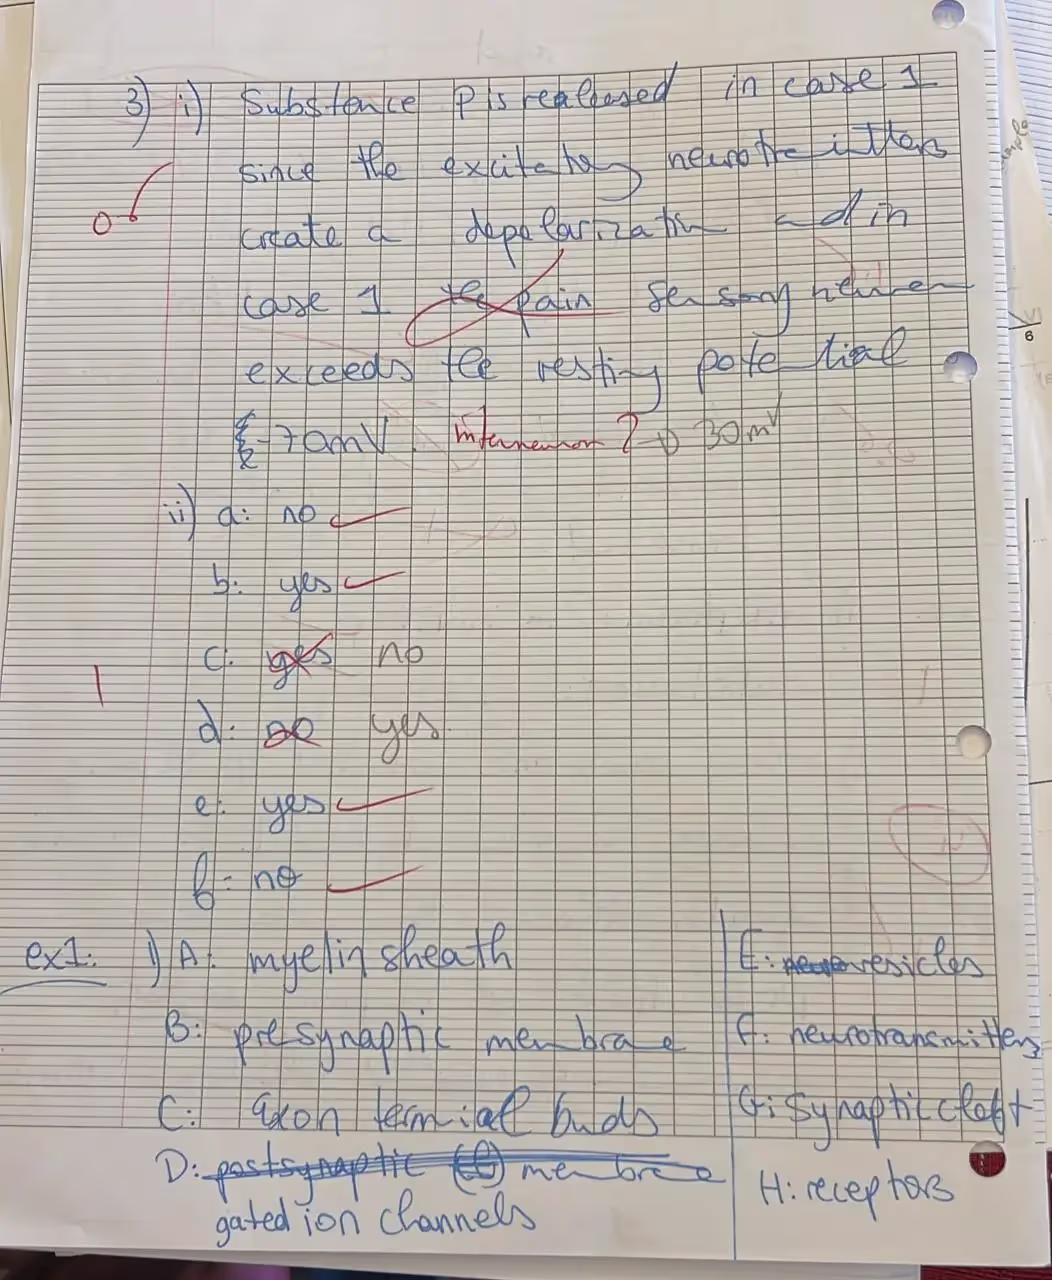 3) i) Substance P is realeased in case 1
since the excitatory neurotremitters
create a depolarization and in
case 1 the pain sensory neuron
exceeds the resting potential
-70mV. Interneuron ? → 30mV
0
ii) a: no
b: yes
c. yes no
1
d: no yes.
e: yes
f: no
ex1: 1) A: myelin sheath
B: presynaptic membrane
C: Axon terminal buds
D: postsynaptic membrane
gated ion channels
E: vesicles
F: neurotransmitters
G: synaptic cleft
H: receptors
6